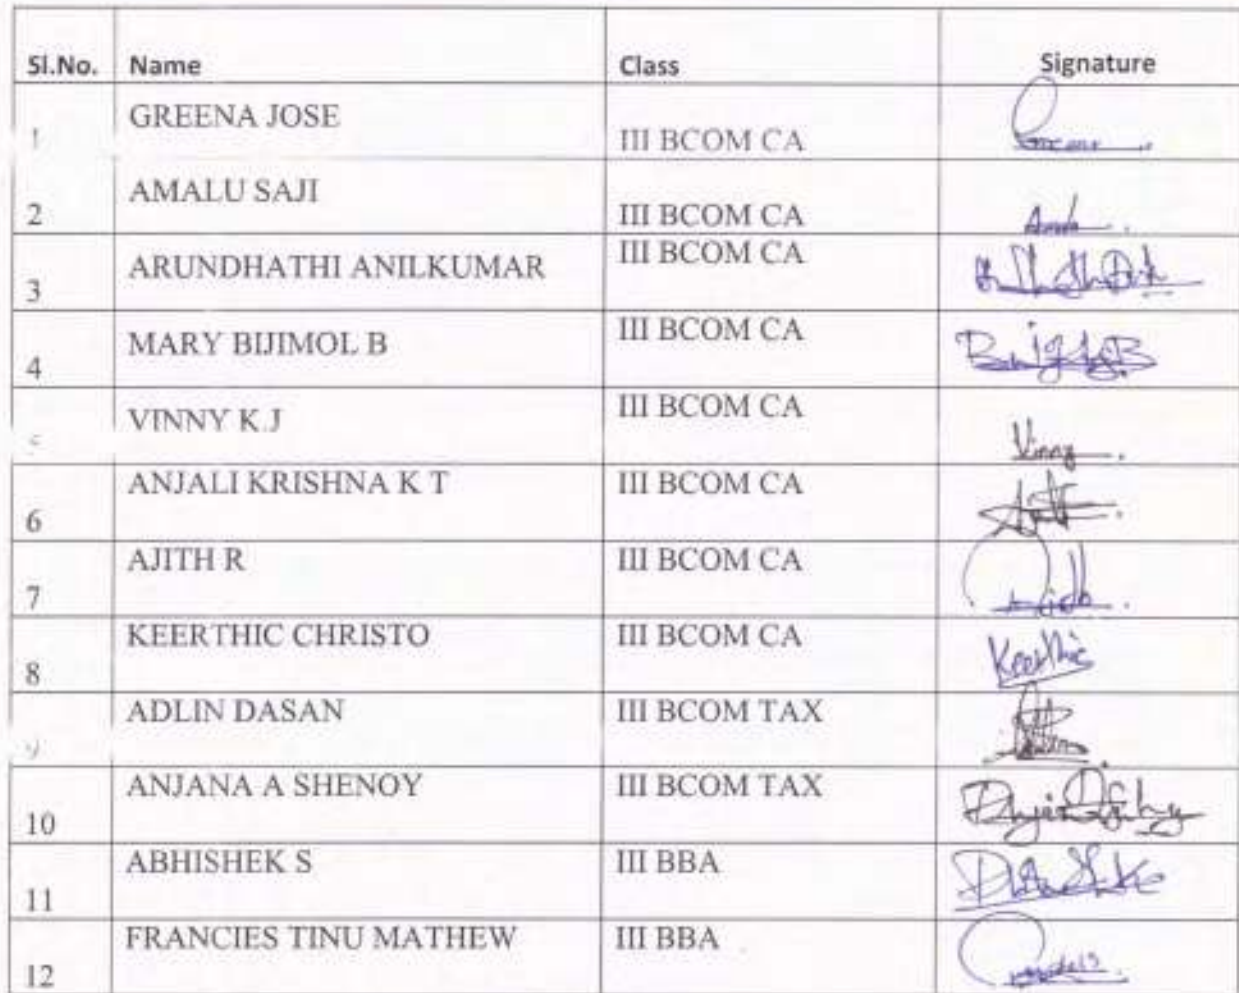 Sl.No. Name Class Signature
1 GREENA JOSE III BCOM CA
2 AMALU SAJI III BCOM CA
3 ARUNDHATHI ANILKUMAR III BCOM CA
4 MARY BIJIMOL B III BCOM CA
5 VINNY K.J III BCOM CA Vinny
6 ANJALI KRISHNA K T III BCOM CA
7 AJITH R III BCOM CA
8 KEERTHIC CHRISTO III BCOM CA Keerthic
9 ADLIN DASAN III BCOM TAX
10 ANJANA A SHENOY III BCOM TAX
11 ABHISHEK S III BBA
12 FRANCIES TINU MATHEW III BBA